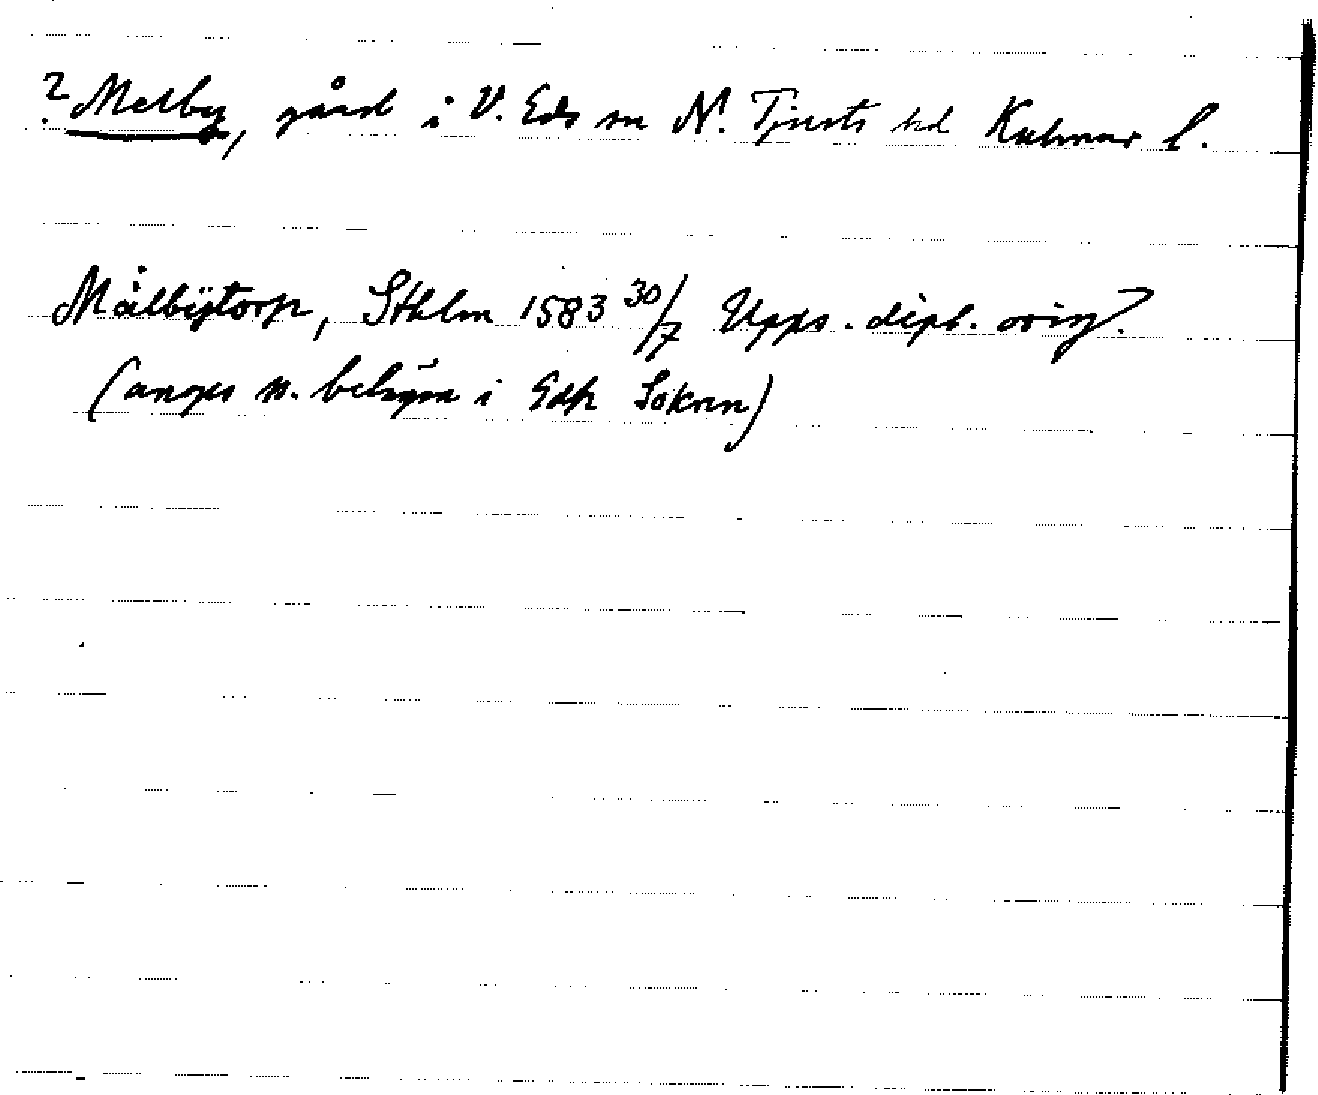 ? Melby, gård i V. Eds sn N. Tjusts hd Kalmar l.
Målbÿtorp, Sthlm 1583 30/7 Upps. dipl. orig.
(anges v. belägen i Edh Soknn)